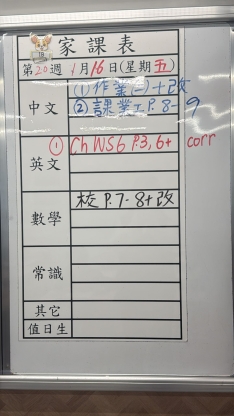 家課表
第20週 1月16日(星期五)
中文 ①作業(二)+改
②課業工P.8-9
英文 ① Ch WS6 P.3,6+ corr
數學 校P.7-8+改
常識
其它
值日生